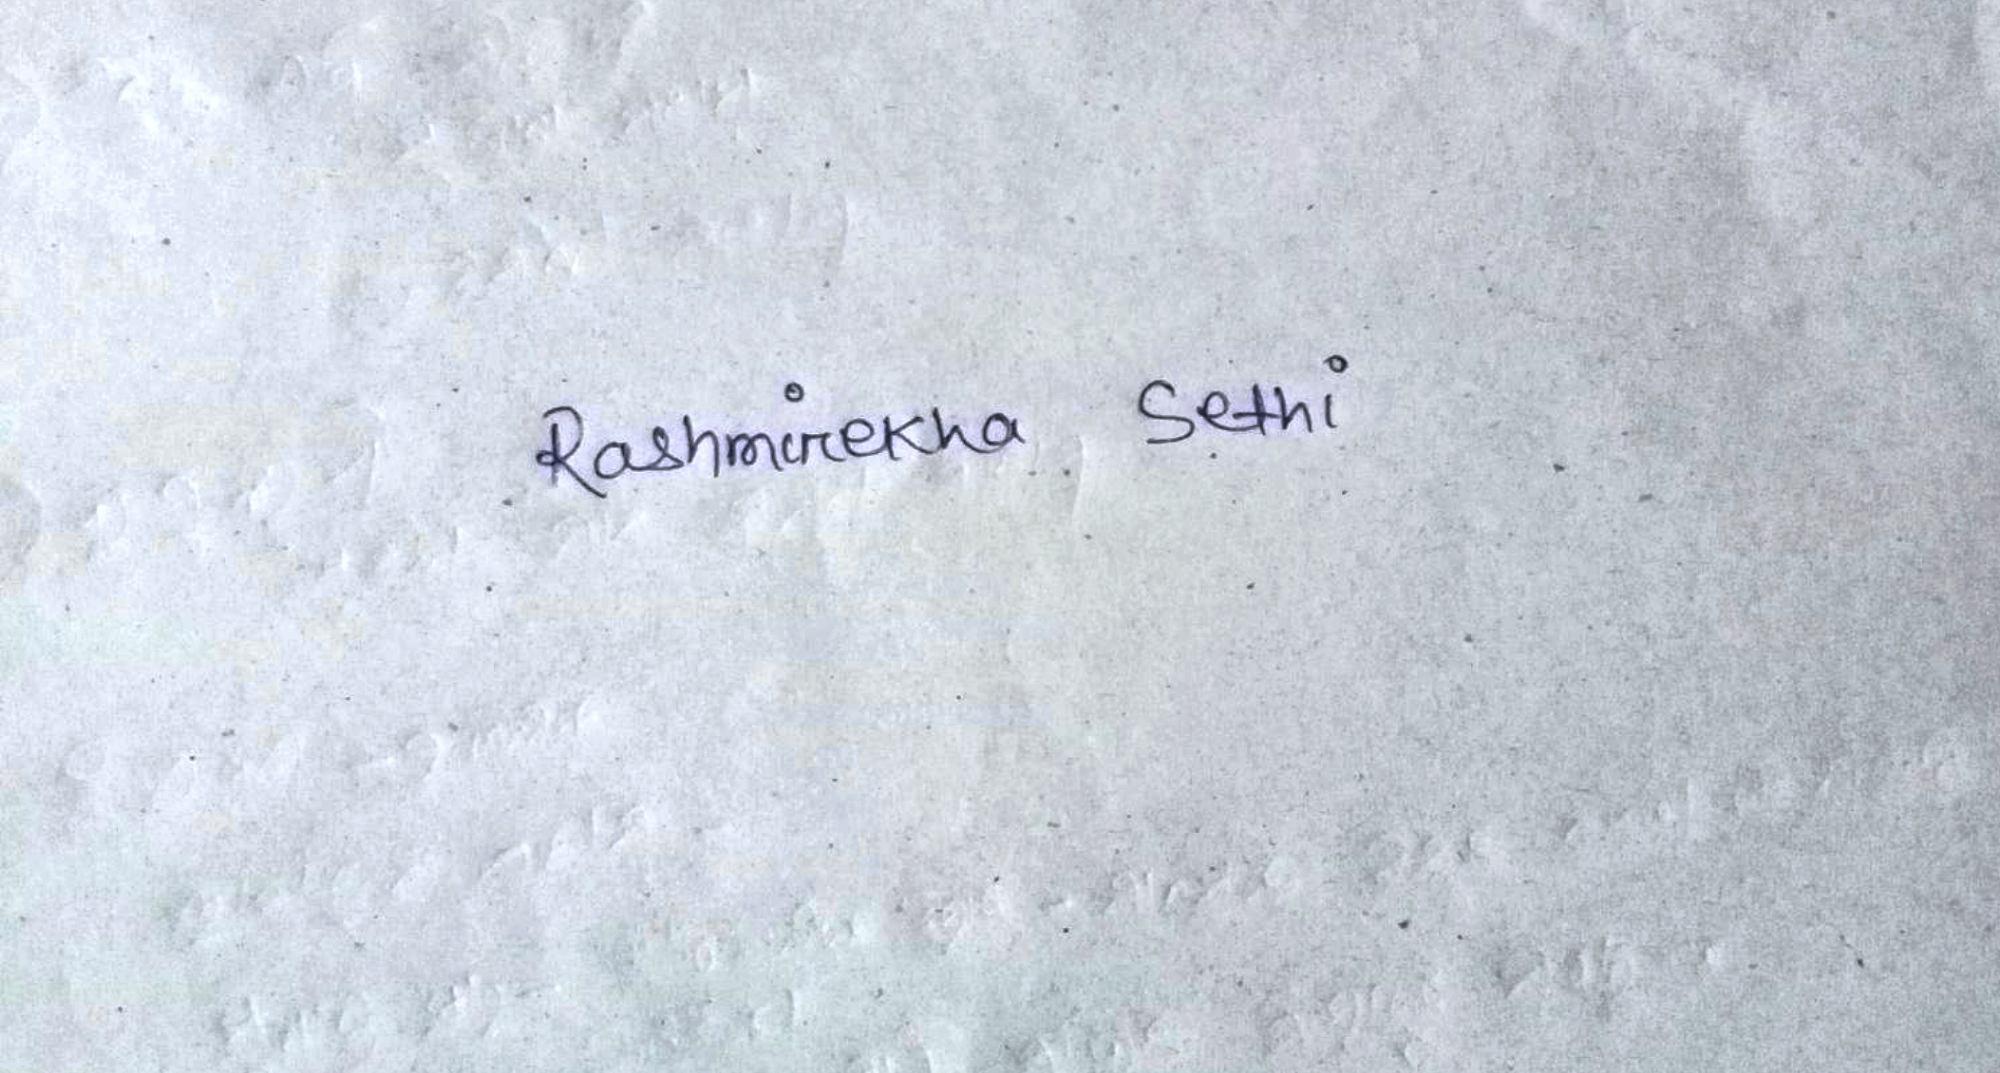 Rashmirekha Sethi